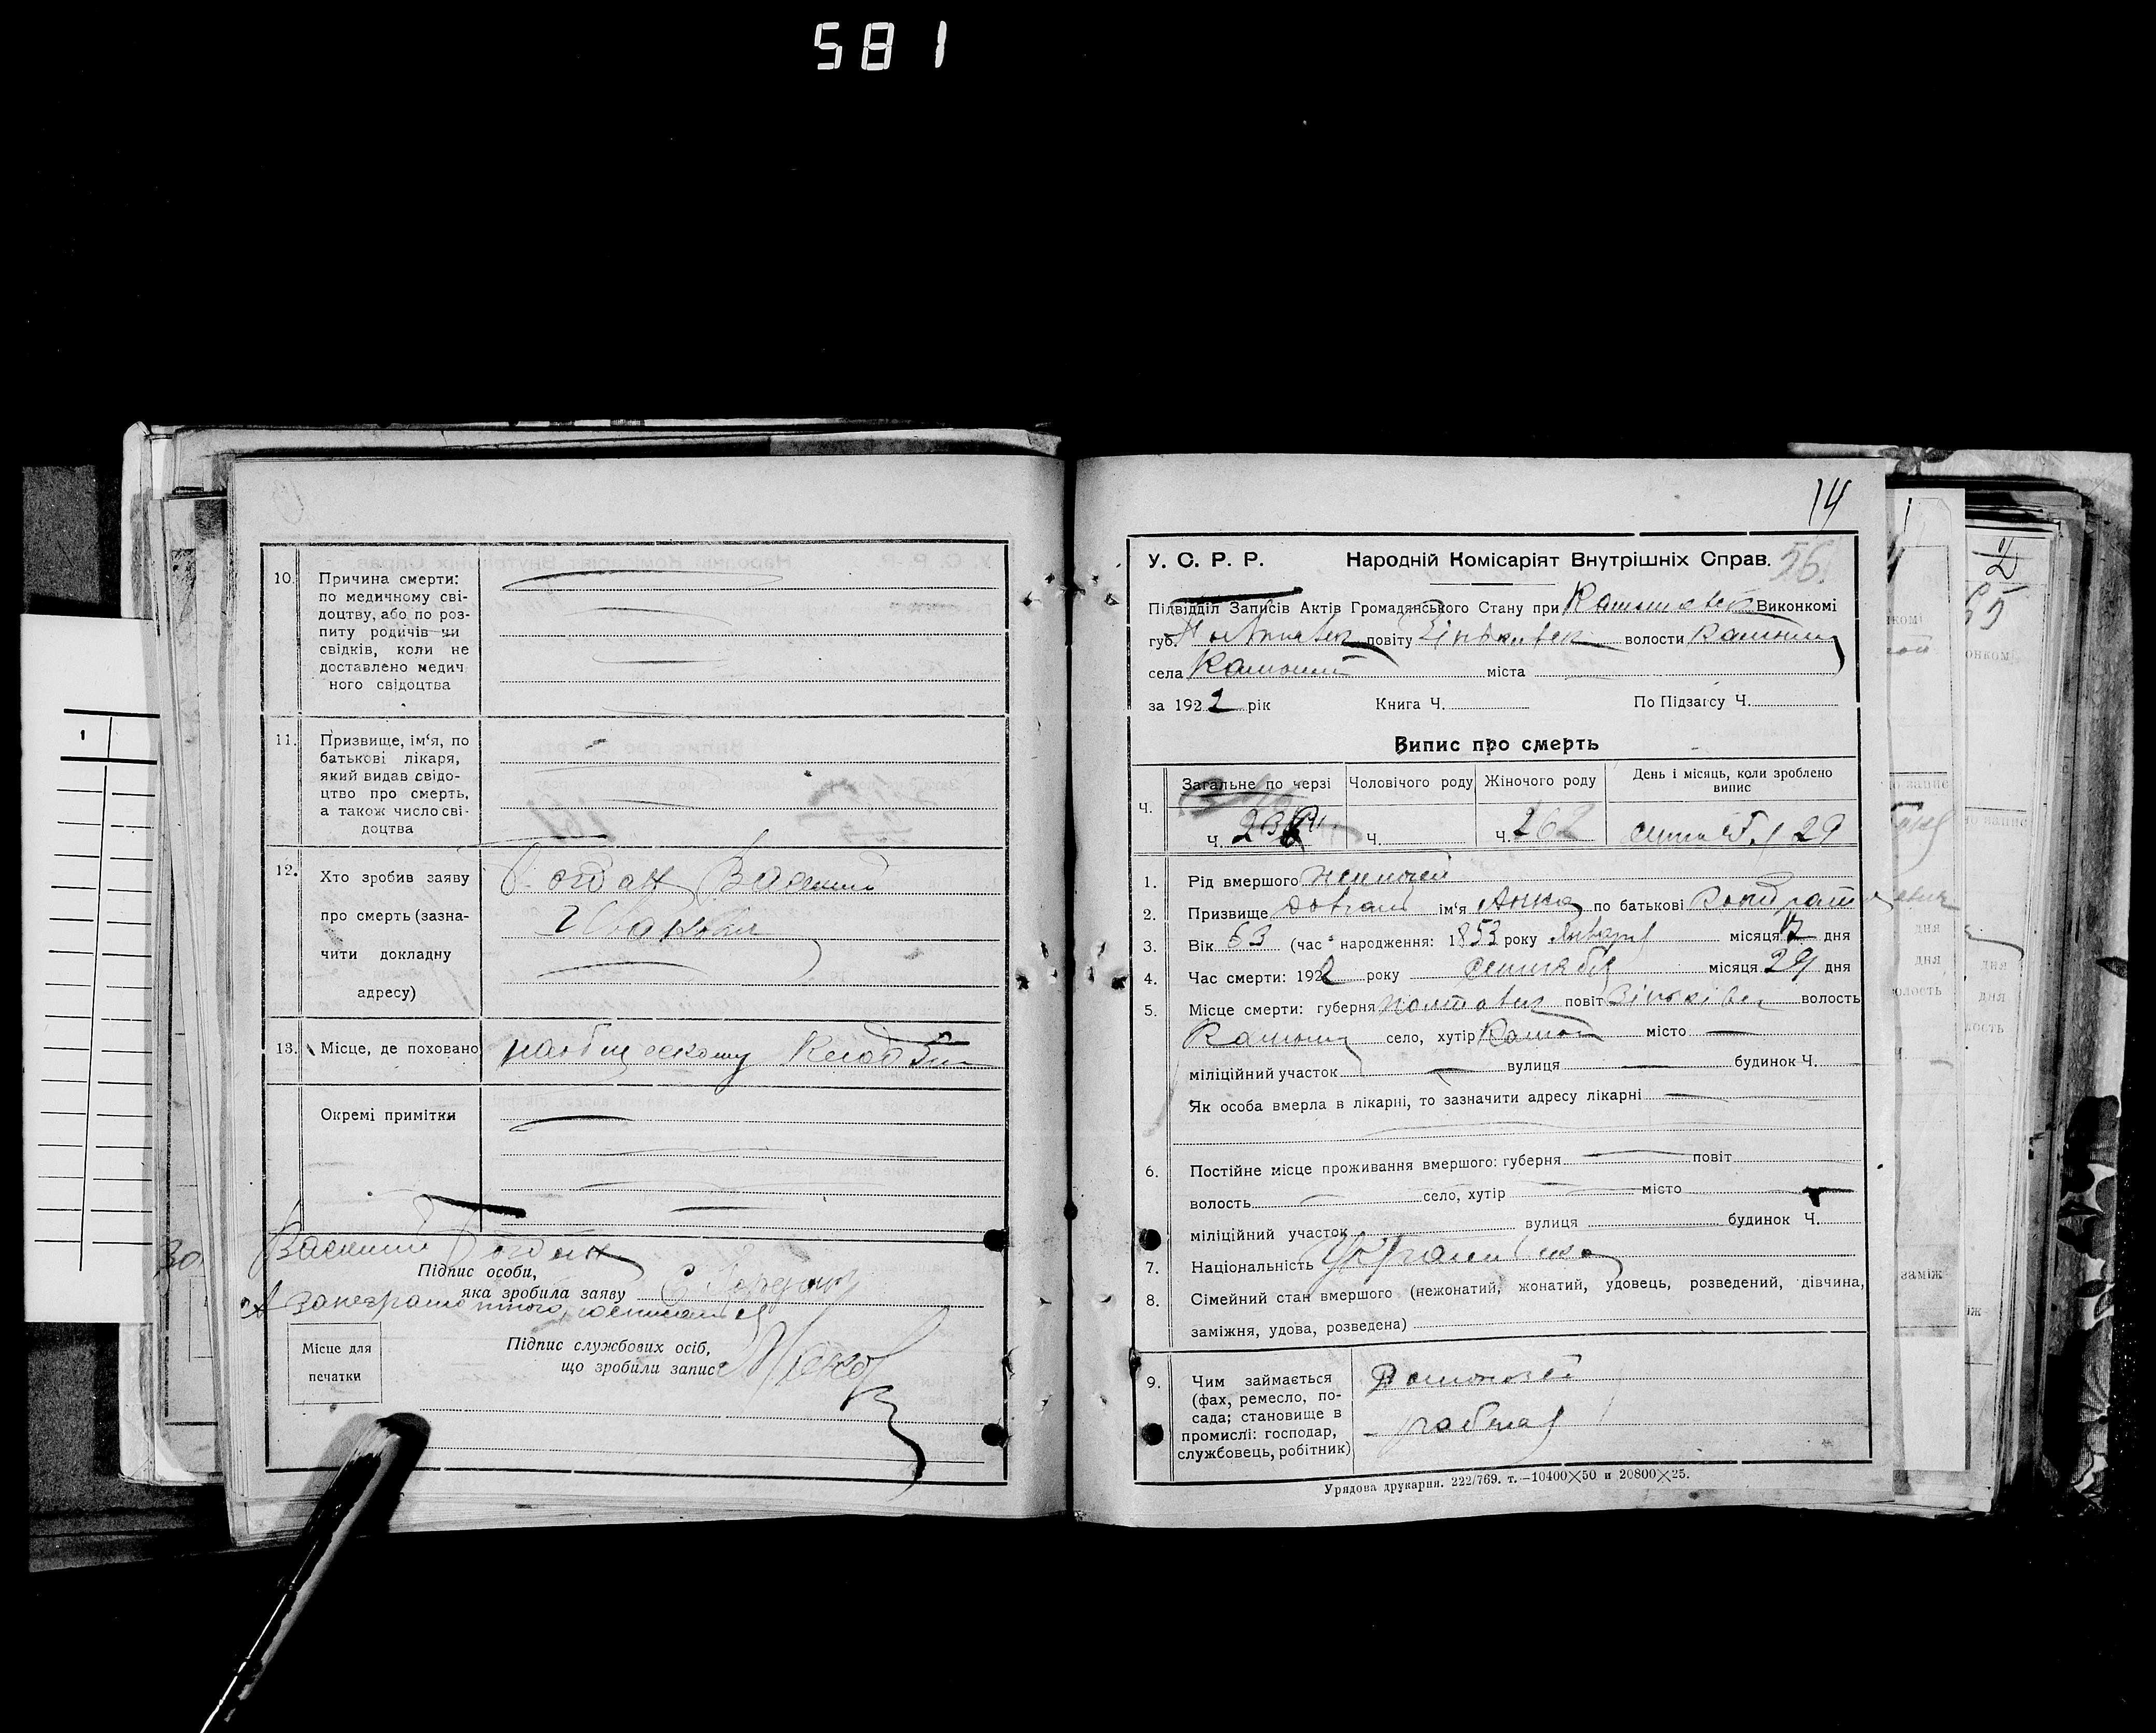 581
10. Причина смерти:
по медичному сві-
доцтву, або по роз-
питу родичів чи
свідків, коли не
доставлено медич
ного свідоцтва
11. Призвище, ім‘я, по
батькові лікаря,
який видав свідо-
цтво про смерть,
а також число сві-
доцтва
12. Хто зробив заяву
про смерть (зазна-
чити докладну
адресу)
Богдан Василий
Иванович
13. Місце, де поховано
Окремі примітки
Василий Богдан
Підпис особи,
яка зробила заяву
А за неграмотного росписался
Місце для
печатки
Підпис службових осіб,
що зробили запис
14
У. С. Р. Р. Народній Комісаріят Внутрішніх Справ. 56.
Підвідділ Записів Актів Громадянського Стану при Виконкомі
губ. Полтавск повіту Зіньківск волости
села міста
за 1922 рік Книга Ч. По Підзагсу Ч.
Випис про смерть
Ч. Загальне по черзі Чоловічого роду Жіночого роду День і місяць, коли зроблено
випис
Ч. Ч. Ч. 262 29
1. Рід вмершого женский
2. Призвище ім‘я Анна по батькові
3. Вік 63 (час народження: 1853 року Января місяця дня
4. Час смерти: 1922 року Сентября місяця 29 дня
5. Місце смерти: губерня Полтавск повіт Зіньківск волость
село, хутір місто
міліційний участок вулиця будинок Ч.
Як особа вмерла в лікарні, то зазначити адресу лікарні
6. Постійне місце проживання вмершого: губерня повіт
волость село, хутір місто
міліційний участок вулиця будинок Ч.
7. Національність
8. Сімейний стан вмершого (нежонатий, жонатий, удовець, розведений, дівчина,
заміжня, удова, розведена)
9. Чим займається
(фах, ремесло, по-
сада; становище в
промислі: господар,
службовець, робітник)
Урядова друкарня. 222/769. т.—10400×50 и 20800×25.